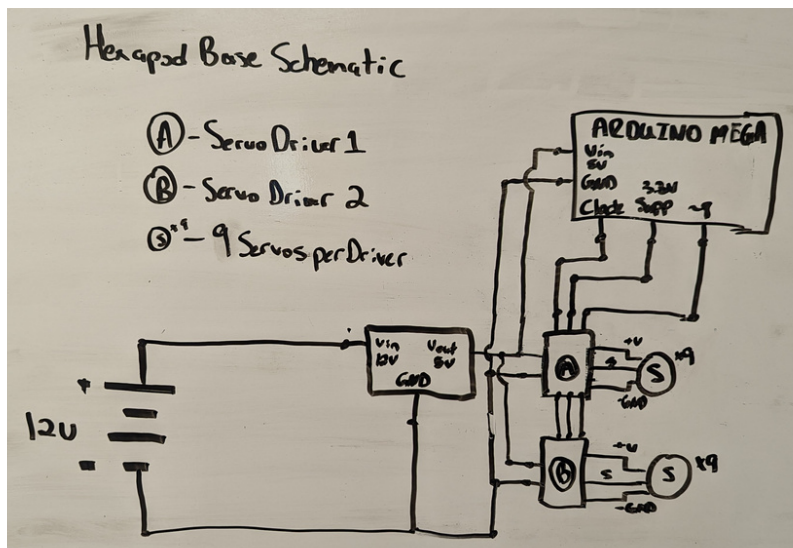 Hexapod Base Schematic
A - Servo Driver 1
B - Servo Driver 2
S x9 - 9 Servos per Driver
ARDUINO MEGA
Vin
5V
GND
3.3V
Clock Supp ~9
Vin Vout
12V 5V
GND
+
12V
-
A
+V
S
-GND
S x9
B
+V
S
-GND
S x9